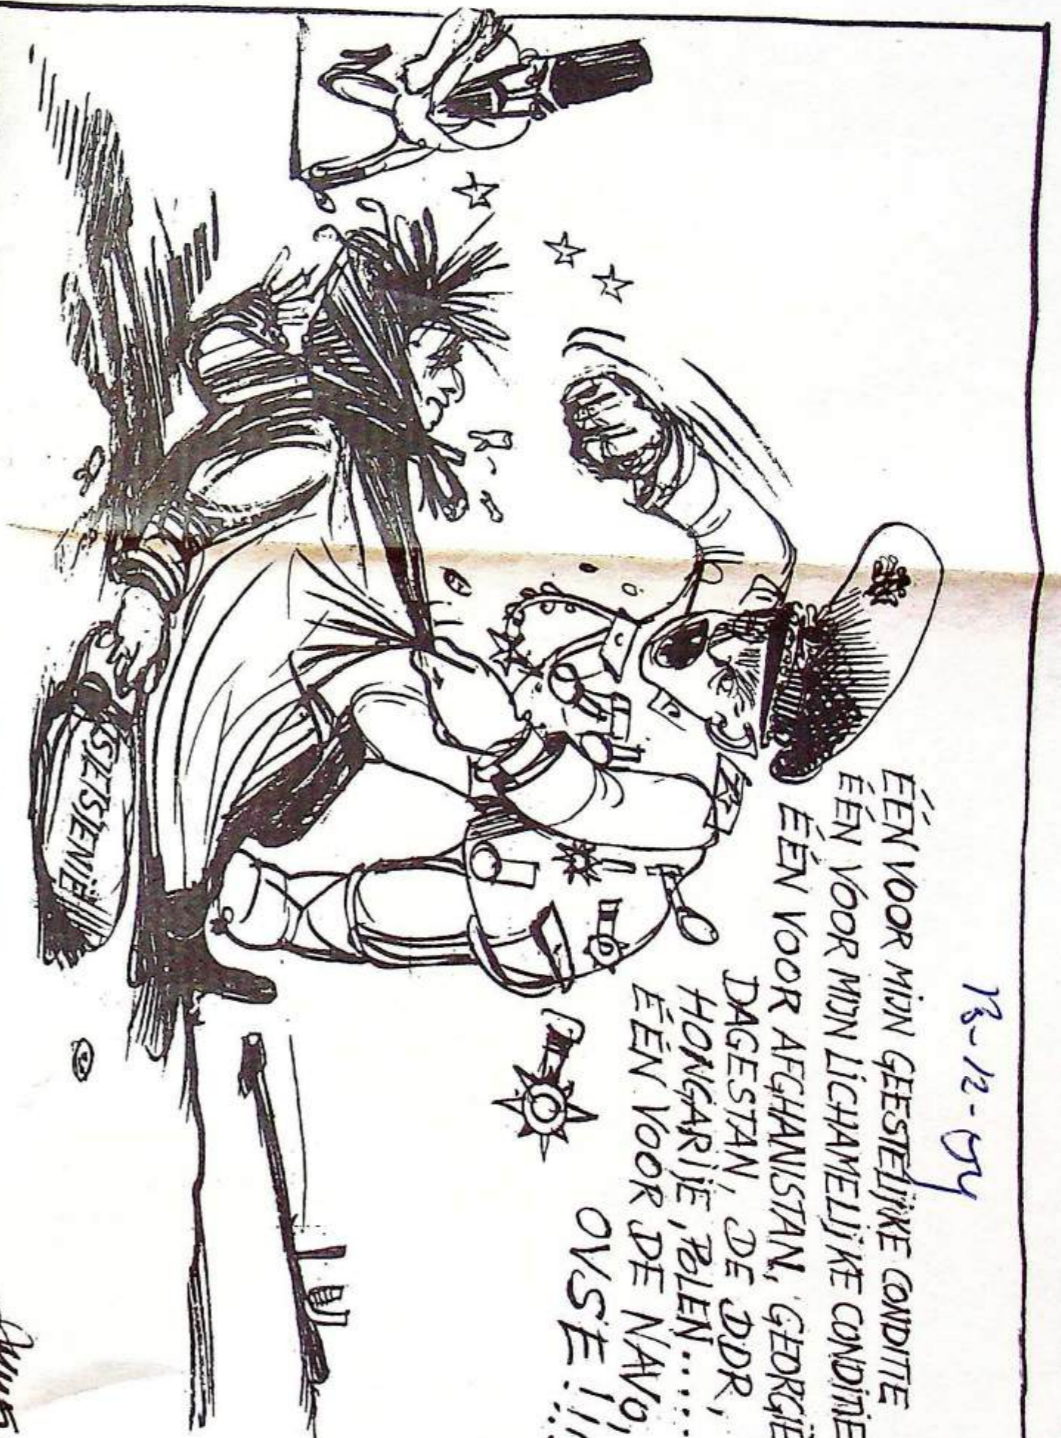 ÉÉN VOOR MIJN GEESTELIJKE CONDITIE
ÉÉN VOOR MIJN LICHAMELIJKE CONDITIE
ÉÉN VOOR AFGHANISTAN, GEORGIË
DAGESTAN, DE DDR,
HONGARIJE, POLEN.....
ÉÉN VOOR DE NAVO,
OVSE !!!
TSJETSJENIË